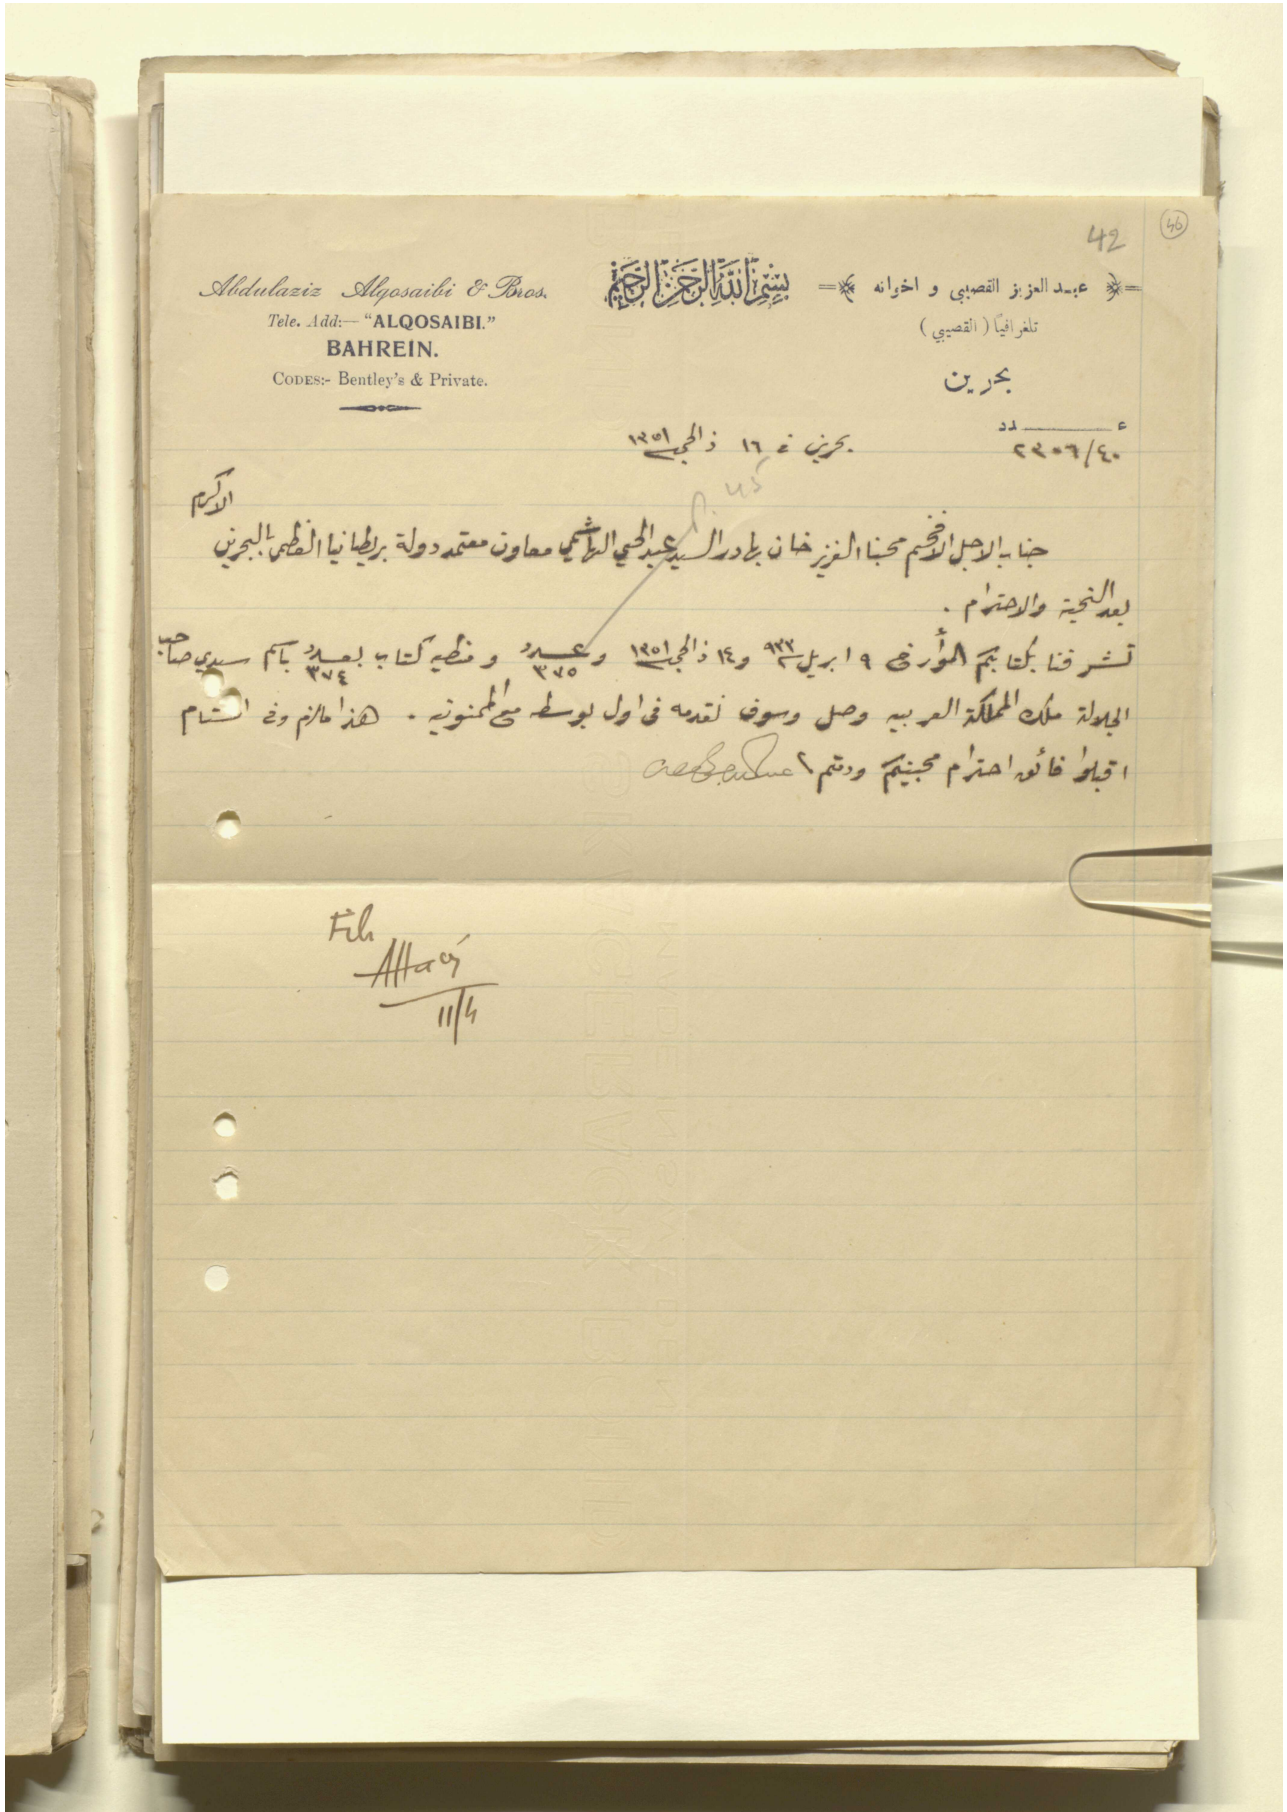 42
46
Abdulaziz Alqosaibi & Bros.
Tele. Add:— "ALQOSAIBI."
BAHREIN.
CODES:- Bentley's & Private.
بسم الله الرحمن الرحيم
عبد العزيز القصيبي و اخوانه
تلغرافياً ( القصيبي )
بحرين
عدد
٢٣٠٦/٤٠
بحرين في ١٦ ذالحجه ١٣٥١
P. 45
جناب الاجل الافخم محبنا العزيز خان بهادر السيد عبد الحي الهاشمي معاون معتمد دولة بريطانيا العظمى بالبحرين الاكرم
بعد التحية والاحترام .
تشرفنا بكتابكم المؤرخ ٩ ابريل ٩٣٣ و ١٤ ذالحجه ١٣٥١ وعدد ٣٧٥ و منطيه كتاب بعدد ٣٧٤ باسم سيدي صاحب
الجلالة ملك المملكة العربيه وصل وسوف نقدمه في اول بوسطه مع الممنونيه . هذا مالزم وفي الختام
اقبلوا فائق احترام محبيكم ودمتم
File
11/4